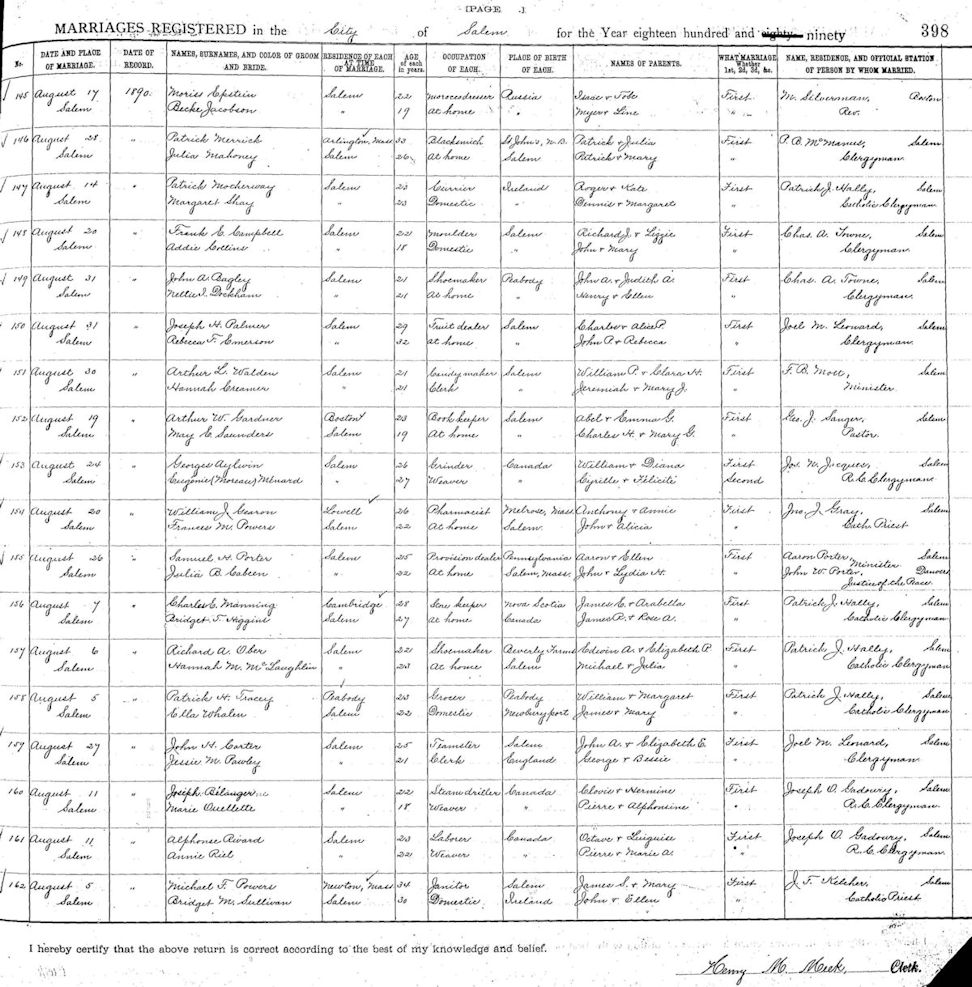 [PAGE .]
MARRIAGES REGISTERED in the City of Salem for the Year eighteen hundred and eighty ninety 398
No. DATE AND PLACE OF MARRIAGE. DATE OF RECORD. NAMES, SURNAMES, AND COLOR OF GROOM AND BRIDE. RESIDENCE OF EACH AT TIME OF MARRIAGE. AGE of each in years. OCCUPATION OF EACH. PLACE OF BIRTH OF EACH. NAMES OF PARENTS. WHAT MARRIAGE, Whether 1st, 2d, 3d, &c. NAME, RESIDENCE, AND OFFICIAL STATION OF PERSON BY WHOM MARRIED.
145 August 17 1890. Moriss Epstein Salem 22 Moroccodresser Russia Isaac & Tobe First M. Silverman, Boston
Salem Becke Jacobson " 19 At home " Myer & Line " Rev.
146 August 28 " Patrick Merrick Arlington, Mass 33 Blacksmith St John's, N.B. Patrick & Julia First P. B. McManus, Salem
Salem Julia Mahoney Salem 26 At home Salem Patrick & Mary " Clergyman.
147 August 14 " Patrick Mocherway Salem 23 Currier Ireland Roger & Kate First Patrick J. Hally, Salem
Salem Margaret Shay " 23 Domestic " Dennis & Margaret " Catholic Clergyman
148 August 20 " Frank C. Campbell Salem 22 Moulder Salem Richard J. & Lizzie First Chas. A. Towne, Salem
Salem Addie Collins " 18 Domestic " John & Mary " Clergyman.
149 August 31 " John A. Bagley Salem 21 Shoemaker Peabody John A. & Judith A. First Chas. A. Towne, Salem
Salem Nettie I. Dockham " 21 At home " Henry & Ellen " Clergyman.
150 August 31 " Joseph H. Palmer Salem 29 Fruit dealer Salem Charles & Alice P. First Joel M. Leonard, Salem
Salem Rebecca F. Emerson " 32 At home " John P. & Rebecca " Clergyman.
151 August 30 " Arthur L. Walden Salem 21 Candymaker Salem William P. & Clara H. First F. B. Mott, Salem
Salem Hannah Creamer " 21 Clerk " Jeremiah & Mary J. " Minister
152 August 19 " Arthur W. Gardner Boston 23 Bookkeeper Salem Abel & Emma G. First Geo. J. Sanger, Salem
Salem May E. Saunders Salem 19 At home " Charles H. & Mary G. " Pastor.
153 August 24 " Georges Aylwin Salem 26 Grinder Canada William & Diana First Jos. N. Jacques, Salem
Salem Eugenie (Moreau) Ménard " 27 Weaver " Cyrille & Félicité Second R.C. Clergyman
154 August 20 " William J. Gearon Lowell 26 Pharmacist Melrose, Mass. Anthony & Annie First Jno. J. Gray, Salem
Salem Frances M. Powers Salem 22 At home Salem. John & Alicia " Cath. Priest
155 August 26 " Samuel H. Porter Salem 25 Provision dealer Pennsylvania Aaron & Ellen First Aaron Porter, Minister Salem
Salem Julia B. Cabeen " 22 At home Salem, Mass. John & Lydia H. " John W. Porter, Danvers
Justice of the Peace.
156 August 7 " Charles E. Manning Cambridge 28 Nova Scotia James E. & Arabella First Patrick J. Hally, Salem
Salem Bridget T. Higgins Salem 27 At home Canada James R. & Rose A. " Catholic Clergyman.
157 August 6 " Richard A. Ober Salem 22 Shoemaker Beverly Farms Edwin A. & Elizabeth P. First Patrick J. Hally, Salem
Salem Hannah M. McLaughlin " 23 At home Salem Michael & Julia " Catholic Clergyman
158 August 5 " Patrick H. Tracey Peabody 23 Grocer Peabody William & Margaret First Patrick J. Hally, Salem
Salem Ella Whalen Salem 22 Domestic Newburyport James & Mary " Catholic Clergyman
159 August 27 " John H. Carter Salem 25 Teamster Salem John A. & Elizabeth E. First Joel M. Leonard, Salem
Salem Jessie M. Pawley " 21 Clerk England George & Bessie " Clergyman.
160 August 11 " Joseph Bélanger Salem 22 Steam driller Canada Clovis & Hermine First Joseph O. Gadoury, Salem
Salem Marie Ouellette " 18 Weaver " Pierre & Alphonsine " R.C. Clergyman.
161 August 11 " Alphonse Rivard Salem 23 Laborer Canada Octave & Luiguise First Joseph O. Gadoury, Salem
Salem Annie Riel " 22 Weaver " Pierre & Marie A. " R.C. Clergyman.
162 August 5 " Michael F. Powers Newton, Mass 34 Janitor Salem James S. & Mary First J. T. Kelcher, Salem
Salem Bridget M. Sullivan Salem 30 Domestic Ireland John & Ellen " Catholic Priest
I hereby certify that the above return is correct according to the best of my knowledge and belief.
Henry M. Meek, Clerk.